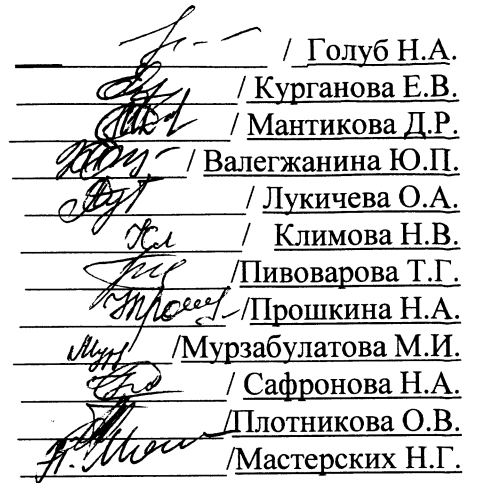 / Голуб Н.А.
/ Курганова Е.В.
/ Мантикова Д.Р.
/ Валегжанина Ю.П.
/ Лукичева О.А.
/ Климова Н.В.
/Пивоварова Т.Г.
/Прошкина Н.А.
/Мурзабулатова М.И.
/ Сафронова Н.А.
/Плотникова О.В.
/Мастерских Н.Г.